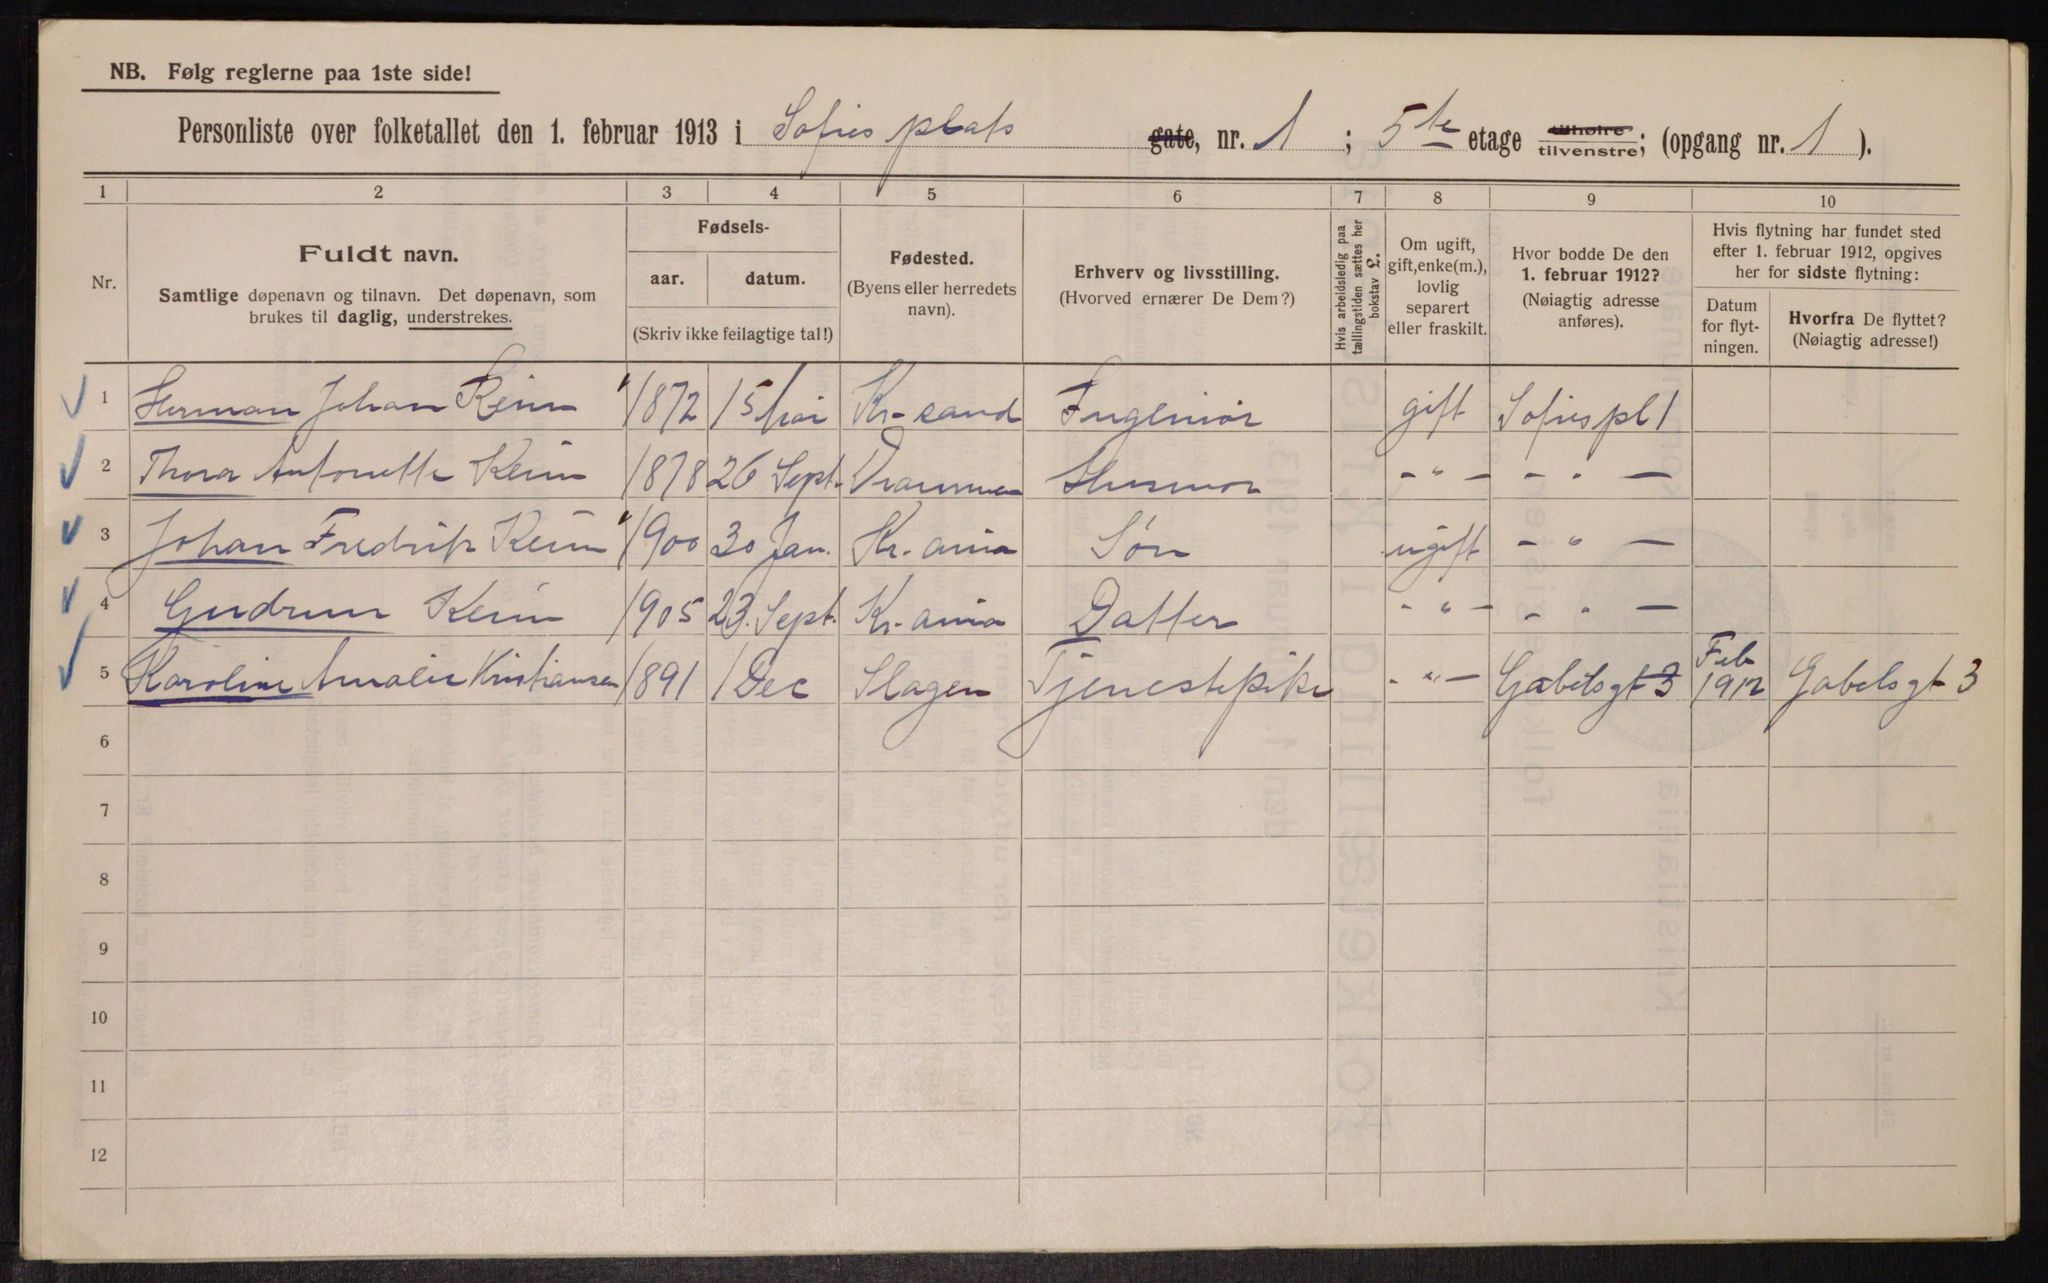 NB. Følg reglerne paa 1ste side!
Personliste over folketallet den 1. februar 1913 i Sofies plats gate, nr. 1; 5te etage tilhøire tilvenstre; (opgang nr. 1).
1 2 3 4 5 6 7 8 9 10
Nr.
Fuldt navn.
Samtlige døpenavn og tilnavn. Det døpenavn, som
brukes til daglig, understrekes.
Fødsels-
aar. datum.
(Skriv ikke feilagtige tal!)
Fødested.
(Byens eller herredets
navn).
Erhverv og livsstilling.
(Hvorved ernærer De Dem?)
Hvis arbeidsledig paa
tællingstiden sættes her
bokstav L.
Om ugift,
gift, enke(m.),
lovlig
separert
eller fraskilt.
Hvor bodde De den
1. februar 1912?
(Nøiagtig adresse
anføres).
Hvis flytning har fundet sted
efter 1. februar 1912, opgives
her for sidste flytning:
Datum
for flyt-
ningen.
Hvorfra De flyttet?
(Nøiagtig adresse!)
1 Herman Johan Keim 1872 15 Mai Kr-sand Ingeniør gift Sofies pl 1
2 Thora Antonette Keim 1878 26 Sept. Drammen Husmor - " - - " -
3 Johan Fredrik Keim 1900 30 Jan. Kr.ania Søn ugift - " -
4 Gudrun Keim 1905 23. Sept. Kr.ania Datter - " - - " -
5 Karoline Amalie Kristiansen 1891 1 Dec Slagen Tjenestepike - " - Gabelsgt 3 Feb 1912 Gabelsgt 3
6
7
8
9
10
11
12